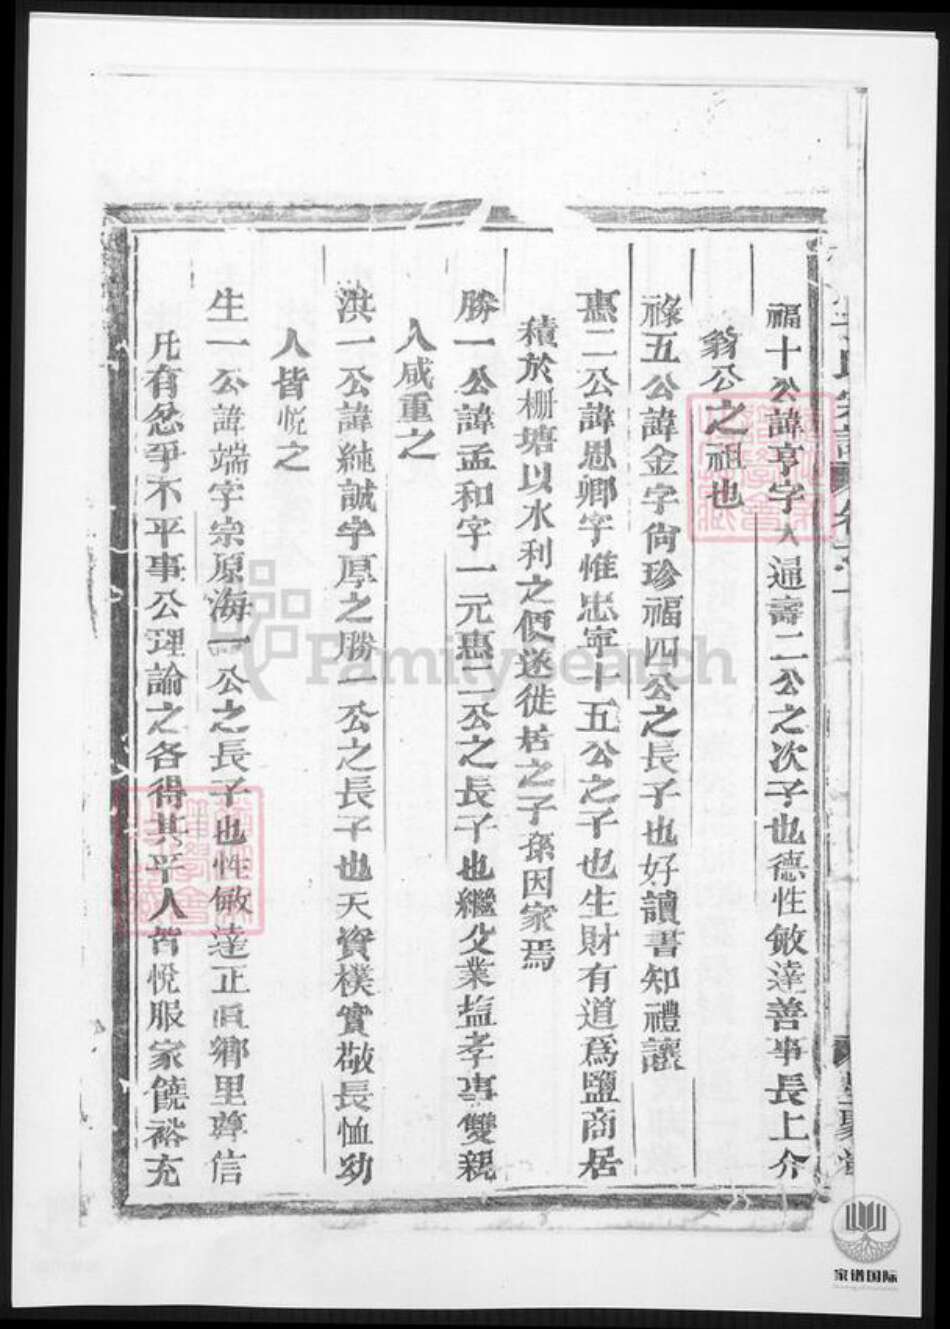 福十公諱亨字人通壽二公之次子也德性敏達善事長上介
翁公之祖也
祿五公諱金字尙珍福四公之長子也好讀書知禮讓
惠二公諱恩卿字惟忠寧十五公之子也生財有道爲鹽商居
積於柵塘以水利之便遂徙居之子孫因家焉
勝一公諱孟和字一元惠二公之長子也繼父業盐孝事雙親
人咸重之
洪一公諱純誠字厚之勝一公之長子也天資樸實敬長恤幼
人皆悅之
生一公諱端字宗原海一公之長子也性敏達正直鄉里尊信
凡有忿爭不平事公理諭之各得其平人皆悅服家饒裕充
FamilySearch
家谱国际